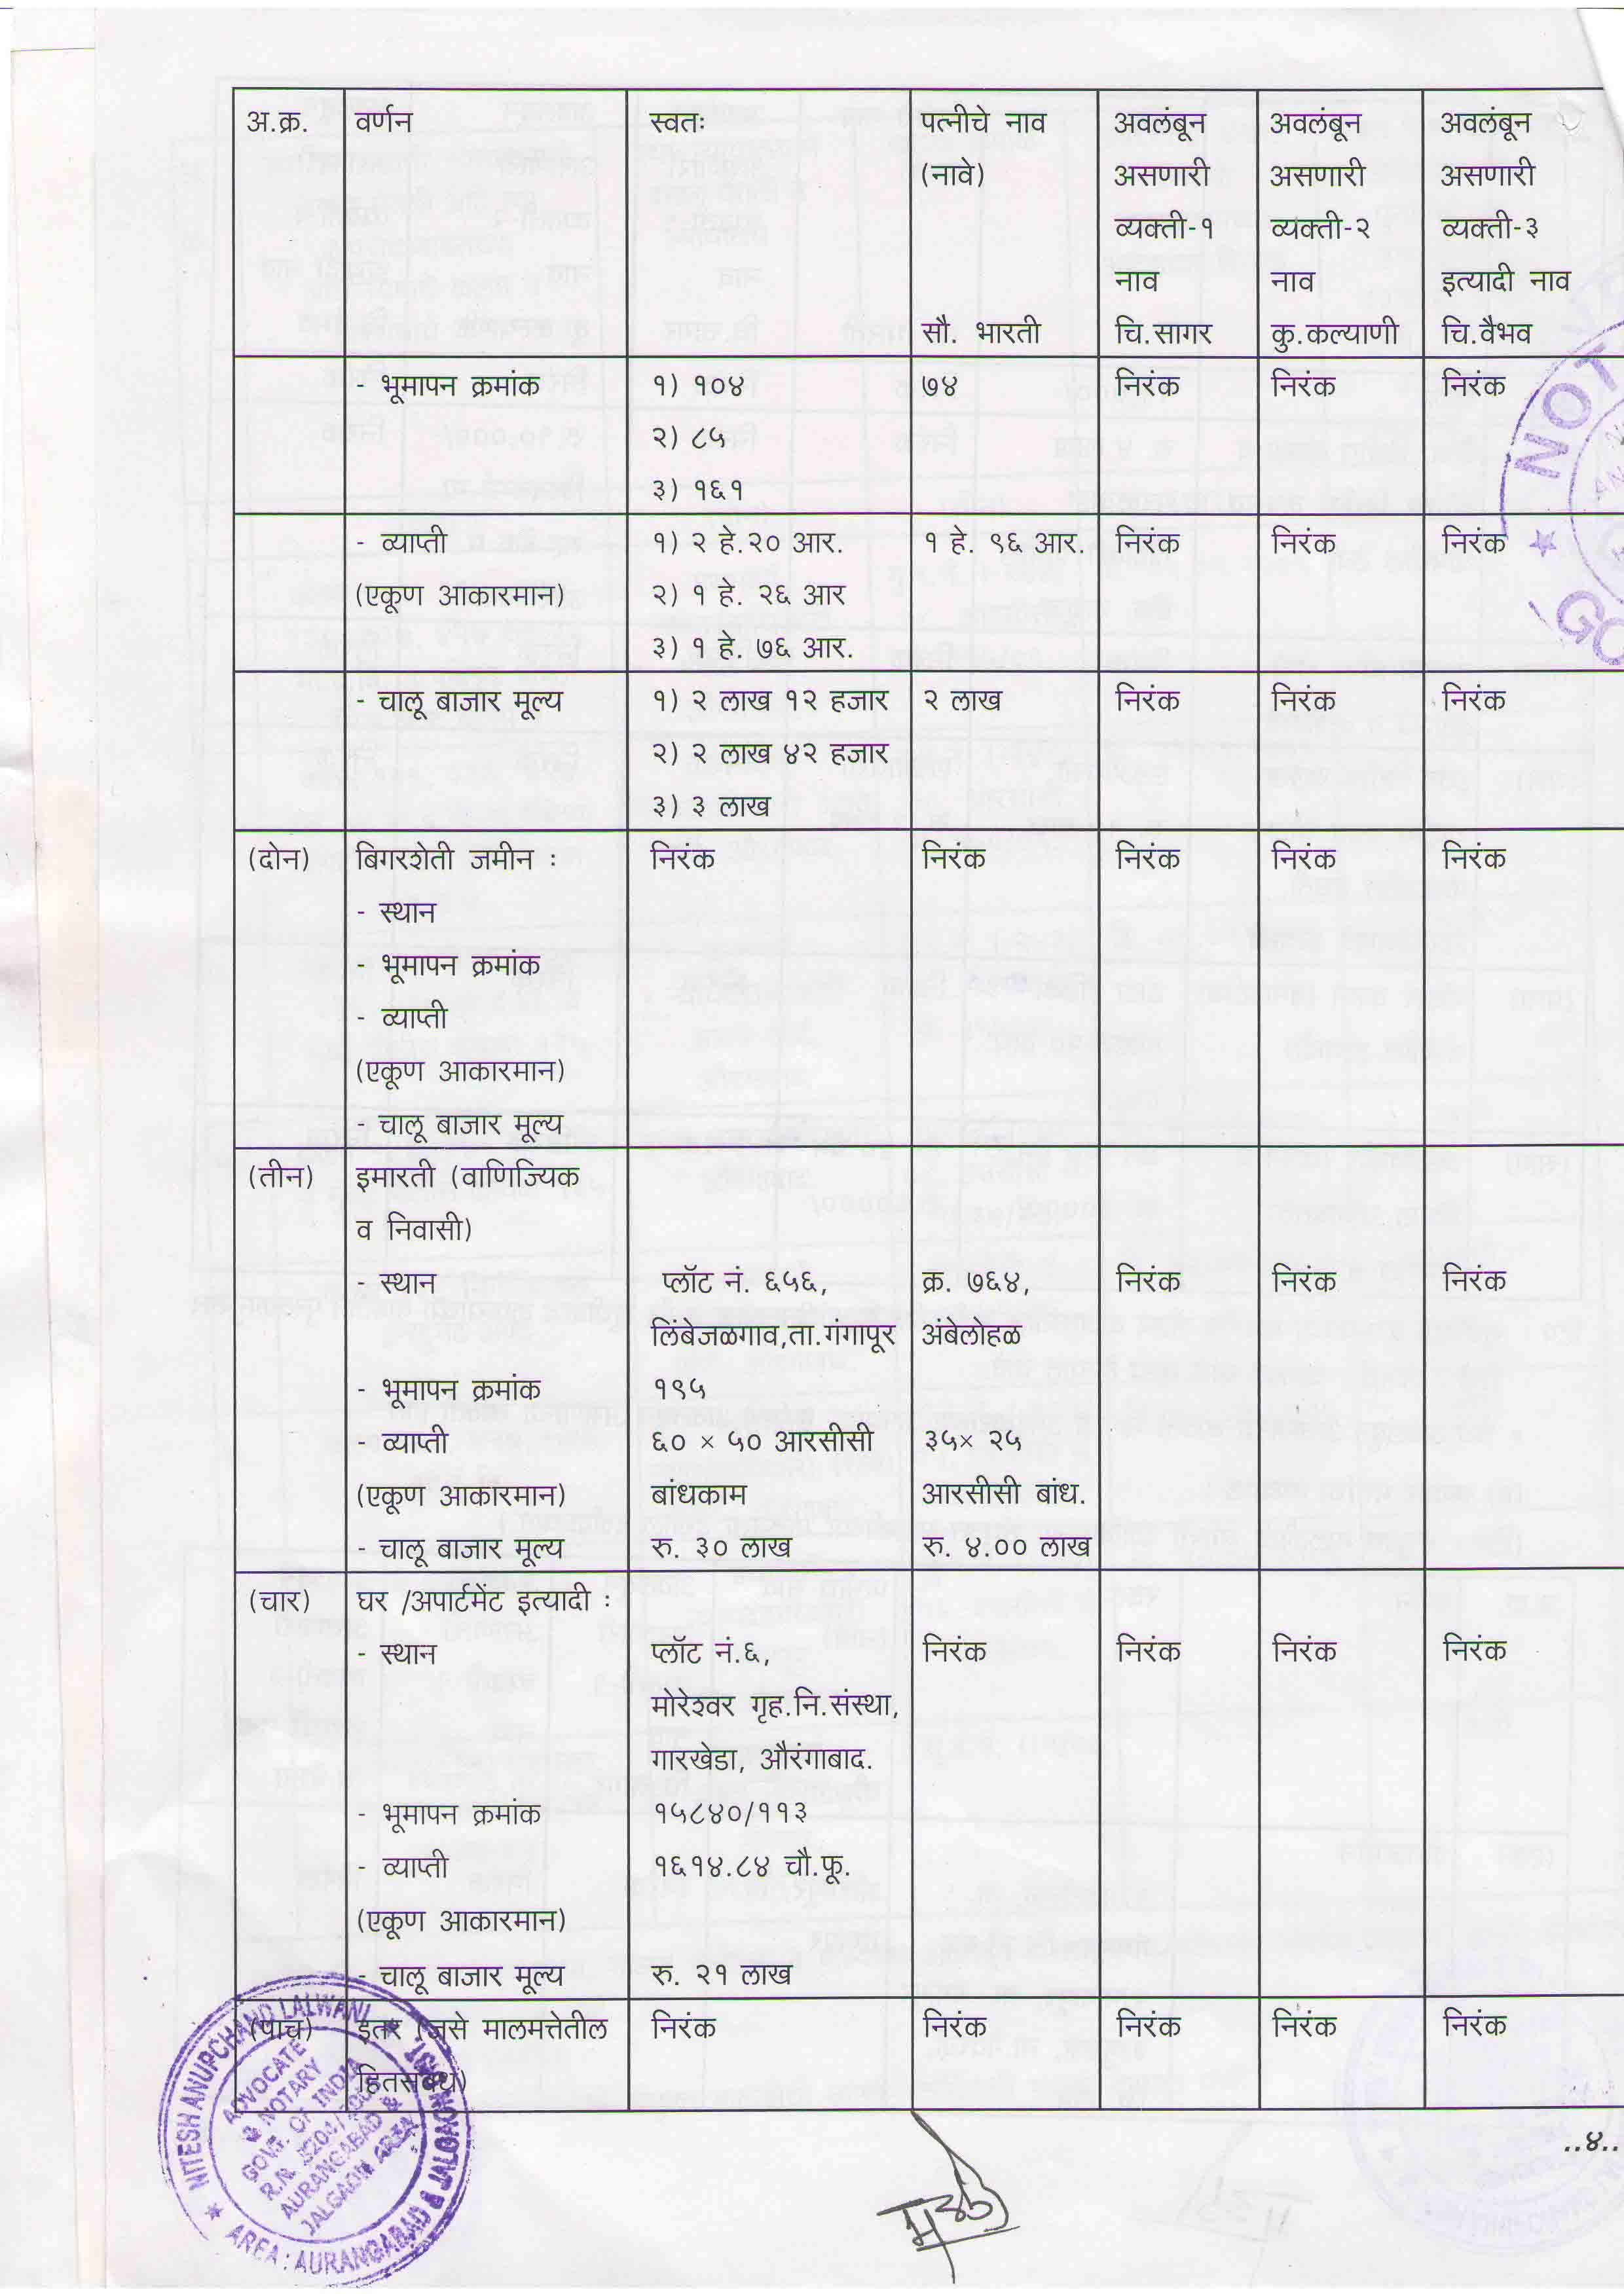 अ.क्र. वर्णन स्वतः पत्नीचे नाव अवलंबून अवलंबून अवलंबून
(नावे) असणारी असणारी असणारी
व्यक्ती-१ व्यक्ती-२ व्यक्ती-३
नाव नाव इत्यादी नाव
सौ. भारती चि.सागर कु.कल्याणी चि.वैभव
- भूमापन क्रमांक १) १०४ ७४ निरंक निरंक निरंक
२) ८५
३) १६१
- व्याप्ती १) २ हे.२० आर. १ हे. ९६ आर. निरंक निरंक निरंक
(एकूण आकारमान) २) १ हे. २६ आर
३) १ हे. ७६ आर.
- चालू बाजार मूल्य १) २ लाख १२ हजार २ लाख निरंक निरंक निरंक
२) २ लाख ४२ हजार
३) ३ लाख
(दोन) बिगरशेती जमीन : निरंक निरंक निरंक निरंक निरंक
- स्थान
- भूमापन क्रमांक
- व्याप्ती
(एकूण आकारमान)
- चालू बाजार मूल्य
(तीन) इमारती (वाणिज्यिक
व निवासी)
- स्थान प्लॉट नं. ६५६, क्र. ७६४, निरंक निरंक निरंक
लिंबेजळगाव,ता.गंगापूर अंबेलोहळ
- भूमापन क्रमांक १९५
- व्याप्ती ६० × ५० आरसीसी ३५× २५
(एकूण आकारमान) बांधकाम आरसीसी बांध.
- चालू बाजार मूल्य रु. ३० लाख रु. ४.०० लाख
(चार) घर /अपार्टमेंट इत्यादी :
- स्थान प्लॉट नं.६, निरंक निरंक निरंक निरंक
मोरेश्वर गृह.नि.संस्था,
गारखेडा, औरंगाबाद.
- भूमापन क्रमांक १५८४०/११३
- व्याप्ती १६१४.८४ चौ.फू.
(एकूण आकारमान)
- चालू बाजार मूल्य रु. २१ लाख
(पाच) इतर (जसे मालमत्तेतील निरंक निरंक निरंक निरंक निरंक
हितसंबंध)
..४..
NITESH ANUPCHAND LALWANI
ADVOCATE
& NOTARY
GOVT. OF INDIA
R.N.
AURANGABAD &
JALGAON AREA
AREA : AURANGABAD & JALGAON